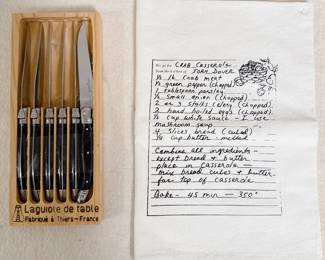 Laguiole de table
Fabriqué à Thiers-France
CRAB CASSEROLE
JOHN DOVER
1/2 lb. Crab meat
green pepper (chopped)
1 tablespoon parsley
1/2 small onion (chopped)
2 or 3 stalks celery (chopped)
2 hard boiled eggs (chopped)
1/2 cup white sauce - I use
mushroom soup
4 slices bread (cubed)
1/4 cup butter - melted
Combine all ingredients -
except bread & butter
place in casserole
mix bread cubes & butter
for top of casserole
Bake - 45 min - 350°